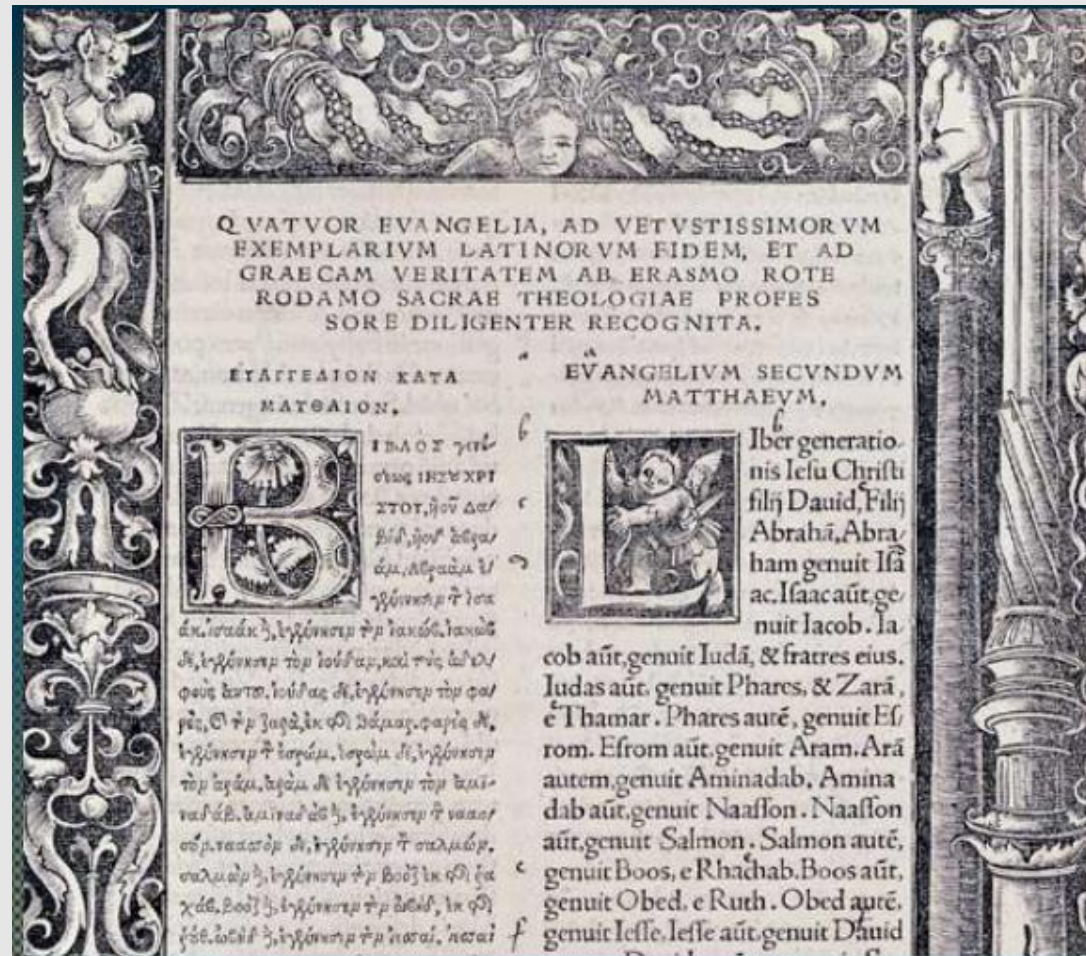 QVATVOR EVANGELIA, AD VETVSTISSIMORVM
EXEMPLARIVM LATINORVM FIDEM, ET AD
GRAECAM VERITATEM AB ERASMO ROTE
RODAMO SACRAE THEOLOGIAE PROFES
SORE DILIGENTER RECOGNITA.
ΕΥΑΓΓΕΛΙΟΝ ΚΑΤΑ
ΜΑΤΘΑΙΟΝ.
ΒΙΒΛΟΣ γενέ
σεως ΙΗΣȢ ΧΡΙ
ΣΤΟΥ, ὑοῦ Δα
βίδ, ὑοῦ ἀβρα
άμ, Αβραὰμ ἐ
γέννησεν ἰσα
άκ. ἰσαὰκ ἐγέννησεν τὸν ἰακώβ. ἰακὼβ
δὲ, ἐγέννησεν τὸν ἰούδαμ, καὶ τοὺς ἀδελ
φοὺς ἰούδας δὲ, ἐγέννησεν τὸν φα
ρὲς, ζαρὰ, ἐκ θάμαρ. φαρὲς δὲ,
ἐγέννησεν ἐσρώμ, ἐσρὼμ δὲ, ἐγέννησεν
τὸν ἀράμ, ἀρὰμ δὲ ἐγέννησεν τὸν ἀμι-
ναδάβ. ἀμιναδὰβ ἐγέννησεν ναασ
σών. ναασσὼν δὲ, ἐγέννησεν σαλμών.
σαλμὼν ἐγέννησεν τὸν βοὸζ ἐκ ῥα
χάβ, βοὸζ ἐγέννησεν τὸν ὠβήδ, ἐκ
ῥύθ. ὠβὴδ ἐγέννησεν τὸν ἰεσσαί. ἰεσσαὶ
a
EVANGELIVM SECVNDVM
MATTHAEVM.
b
LIber generatio
nis Iesu Christi
filij Dauid, Filij
Abrahā, Abra
ham genuit Isa
ac. Isaac aūt, ge
nuit Iacob. Ia
cob aūt, genuit Iudā, & fratres eius.
Iudas aūt. genuit Phares, & Zarā,
e Thamar. Phares autē, genuit Es
rom. Esrom aūt. genuit Aram. Arā
autem, genuit Aminadab. Amina
dab aūt, genuit Naasson. Naasson
aūt, genuit Salmon. Salmon autē,
genuit Boos, e Rhachab. Boos aūt,
genuit Obed, e Ruth. Obed autē,
genuit Iesse. Iesse aūt, genuit Dauid